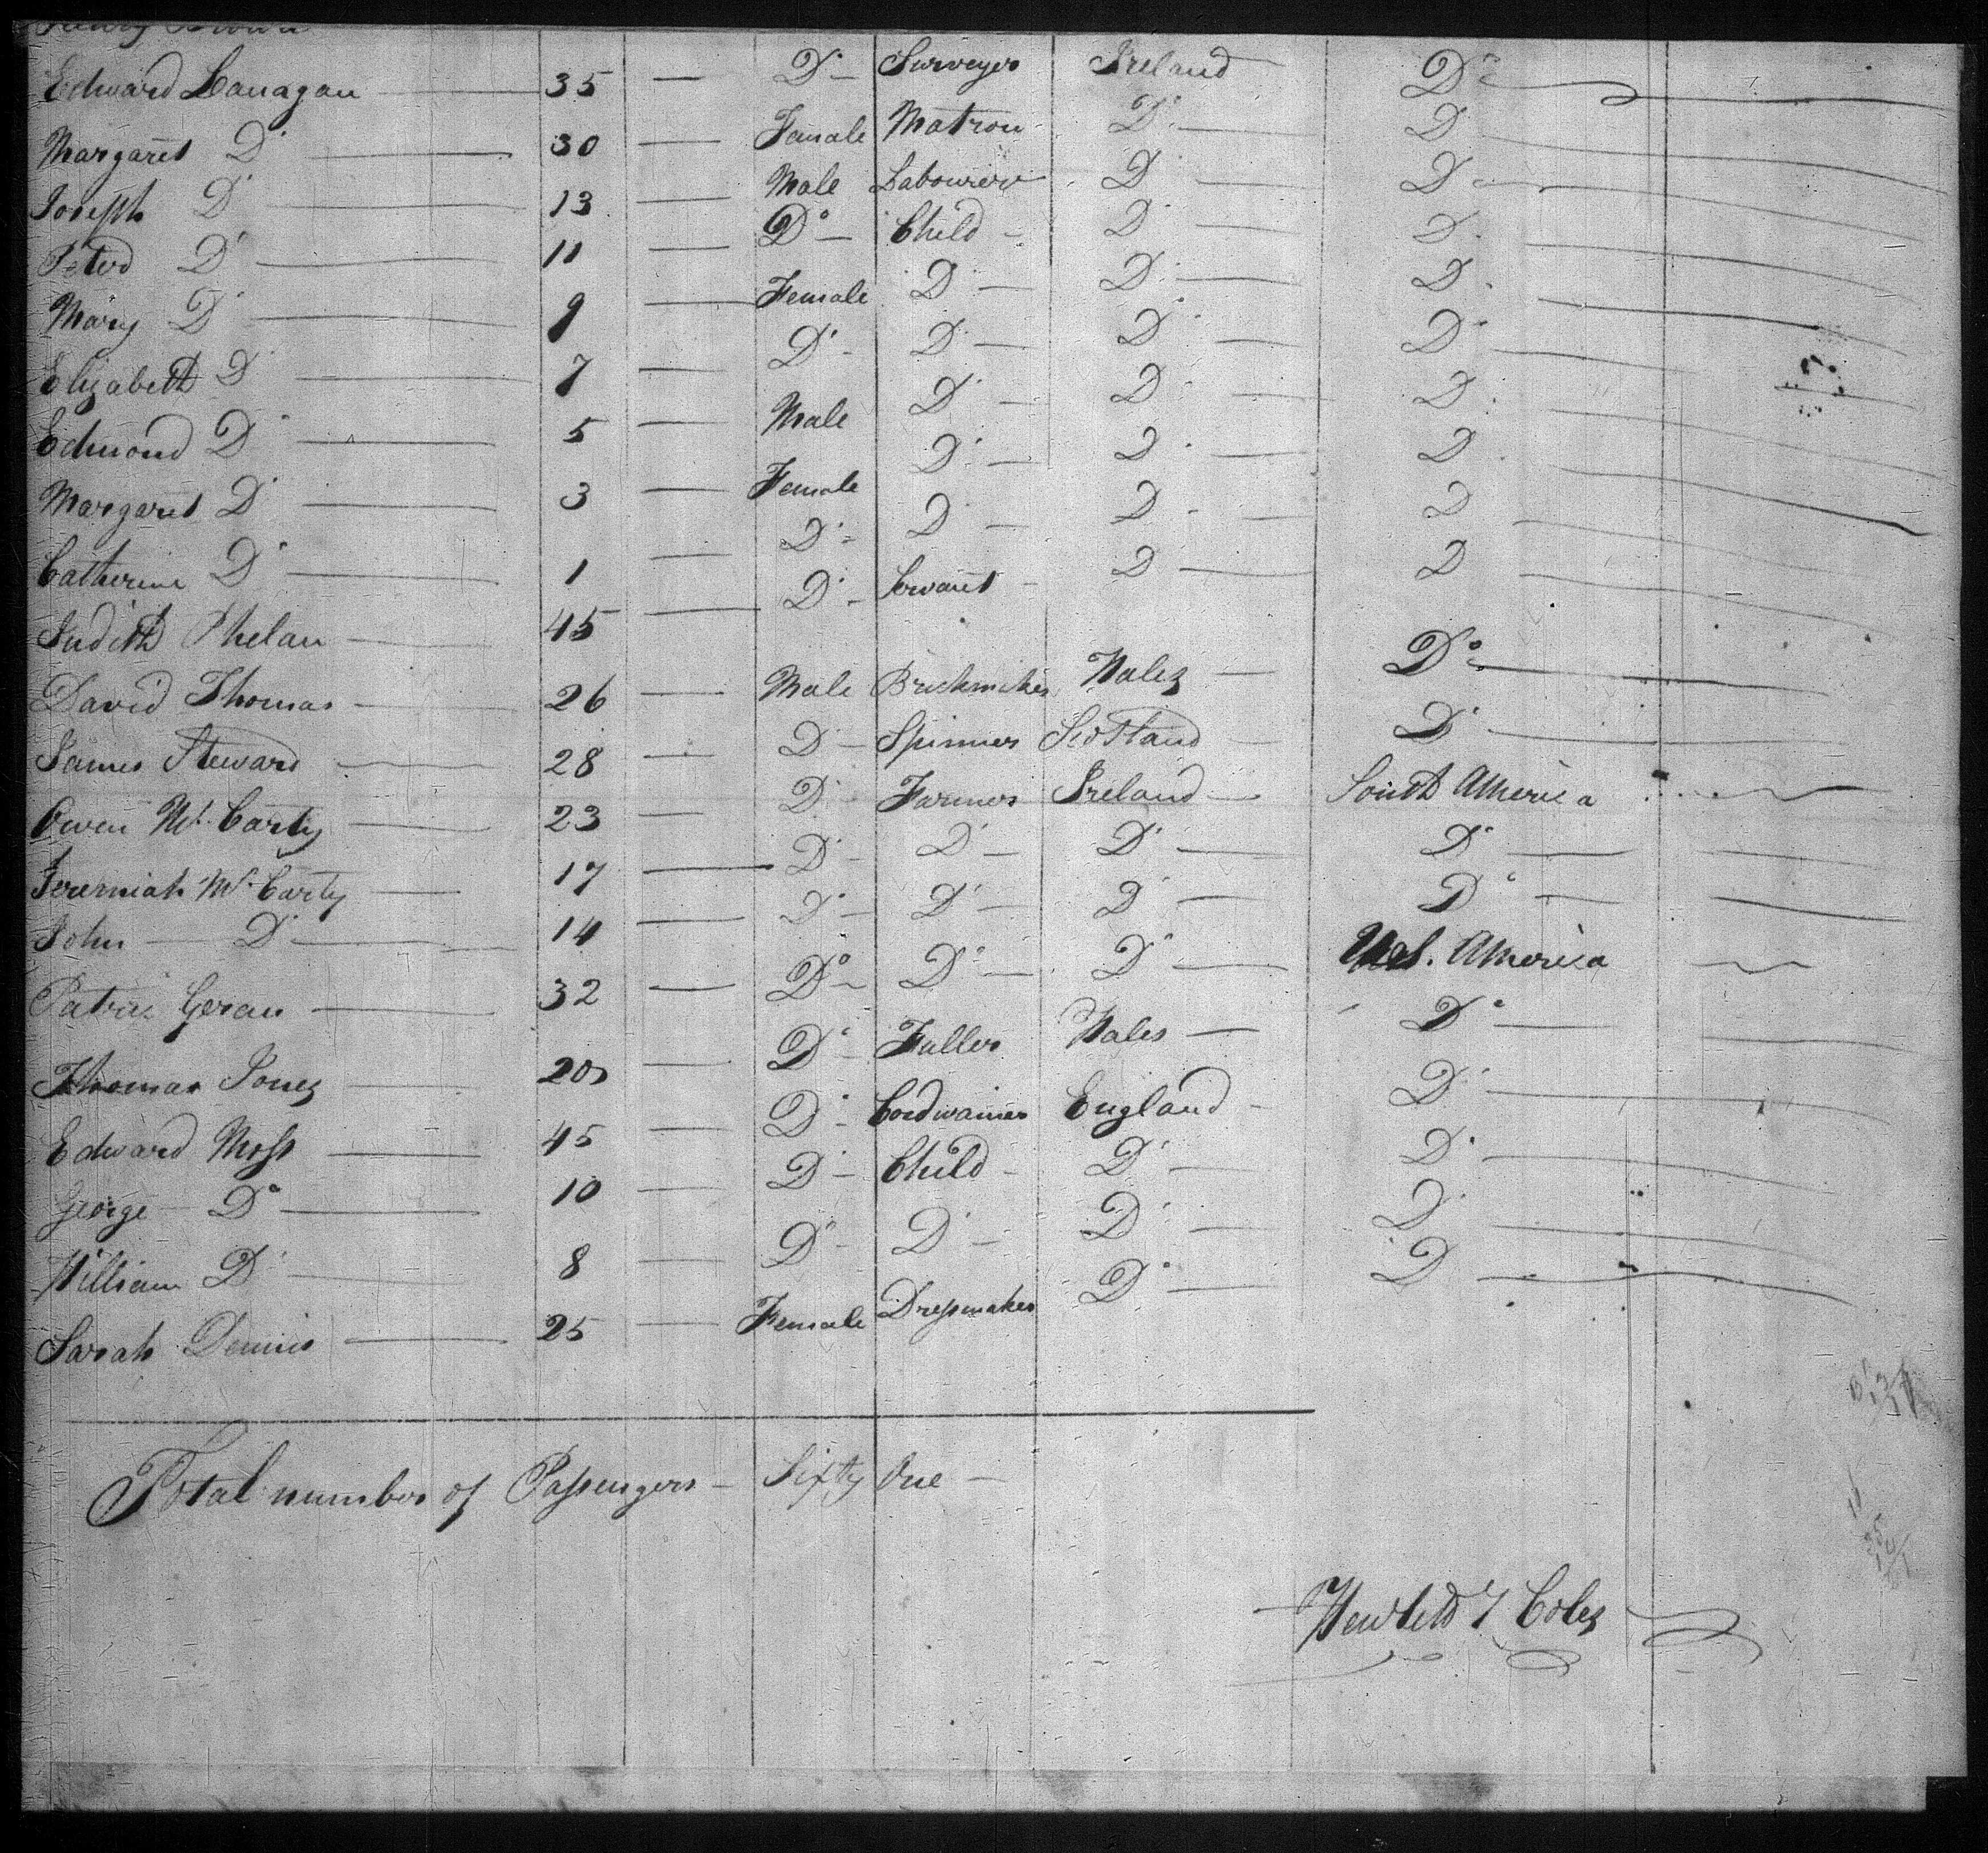 Henry Brown
Edward Lanagan 35 — Do Surveyor Ireland Do
Margaret Do 30 — Female Matron Do Do
Joseph Do 13 — Male Labourer Do Do
Peter Do 11 — Do Child Do Do
Mary Do 9 — Female Do Do Do
Elizabeth Do 7 — Do Do Do Do
Edmond Do 5 — Male Do Do Do
Margaret Do 3 — Female Do Do Do
Catherine Do 1 — Do Do Do Do
Judith Phelan 45 — Do Servant Do Do
David Thomas 26 — Male Brickmaker Wales Do
James Steward 28 — Do Spinner Scotland Do
Owen McCarty 23 Do Farmer Ireland South America
Jeremiah McCarty 17 — Do Do Do Do
John Do 14 — Do Do Do Do
Geran 32 — Do Do Do America
Thomas Jones 20 — Do Fuller Wales Do
Edward Moss 45 — Do Cordwainer England Do
George Do 10 — Do Child Do Do
William Do 8 — Do Do Do Do
Sarah Dennis 25 — Female Dressmaker Do Do
Total number of Passengers — Sixty One —
Coles